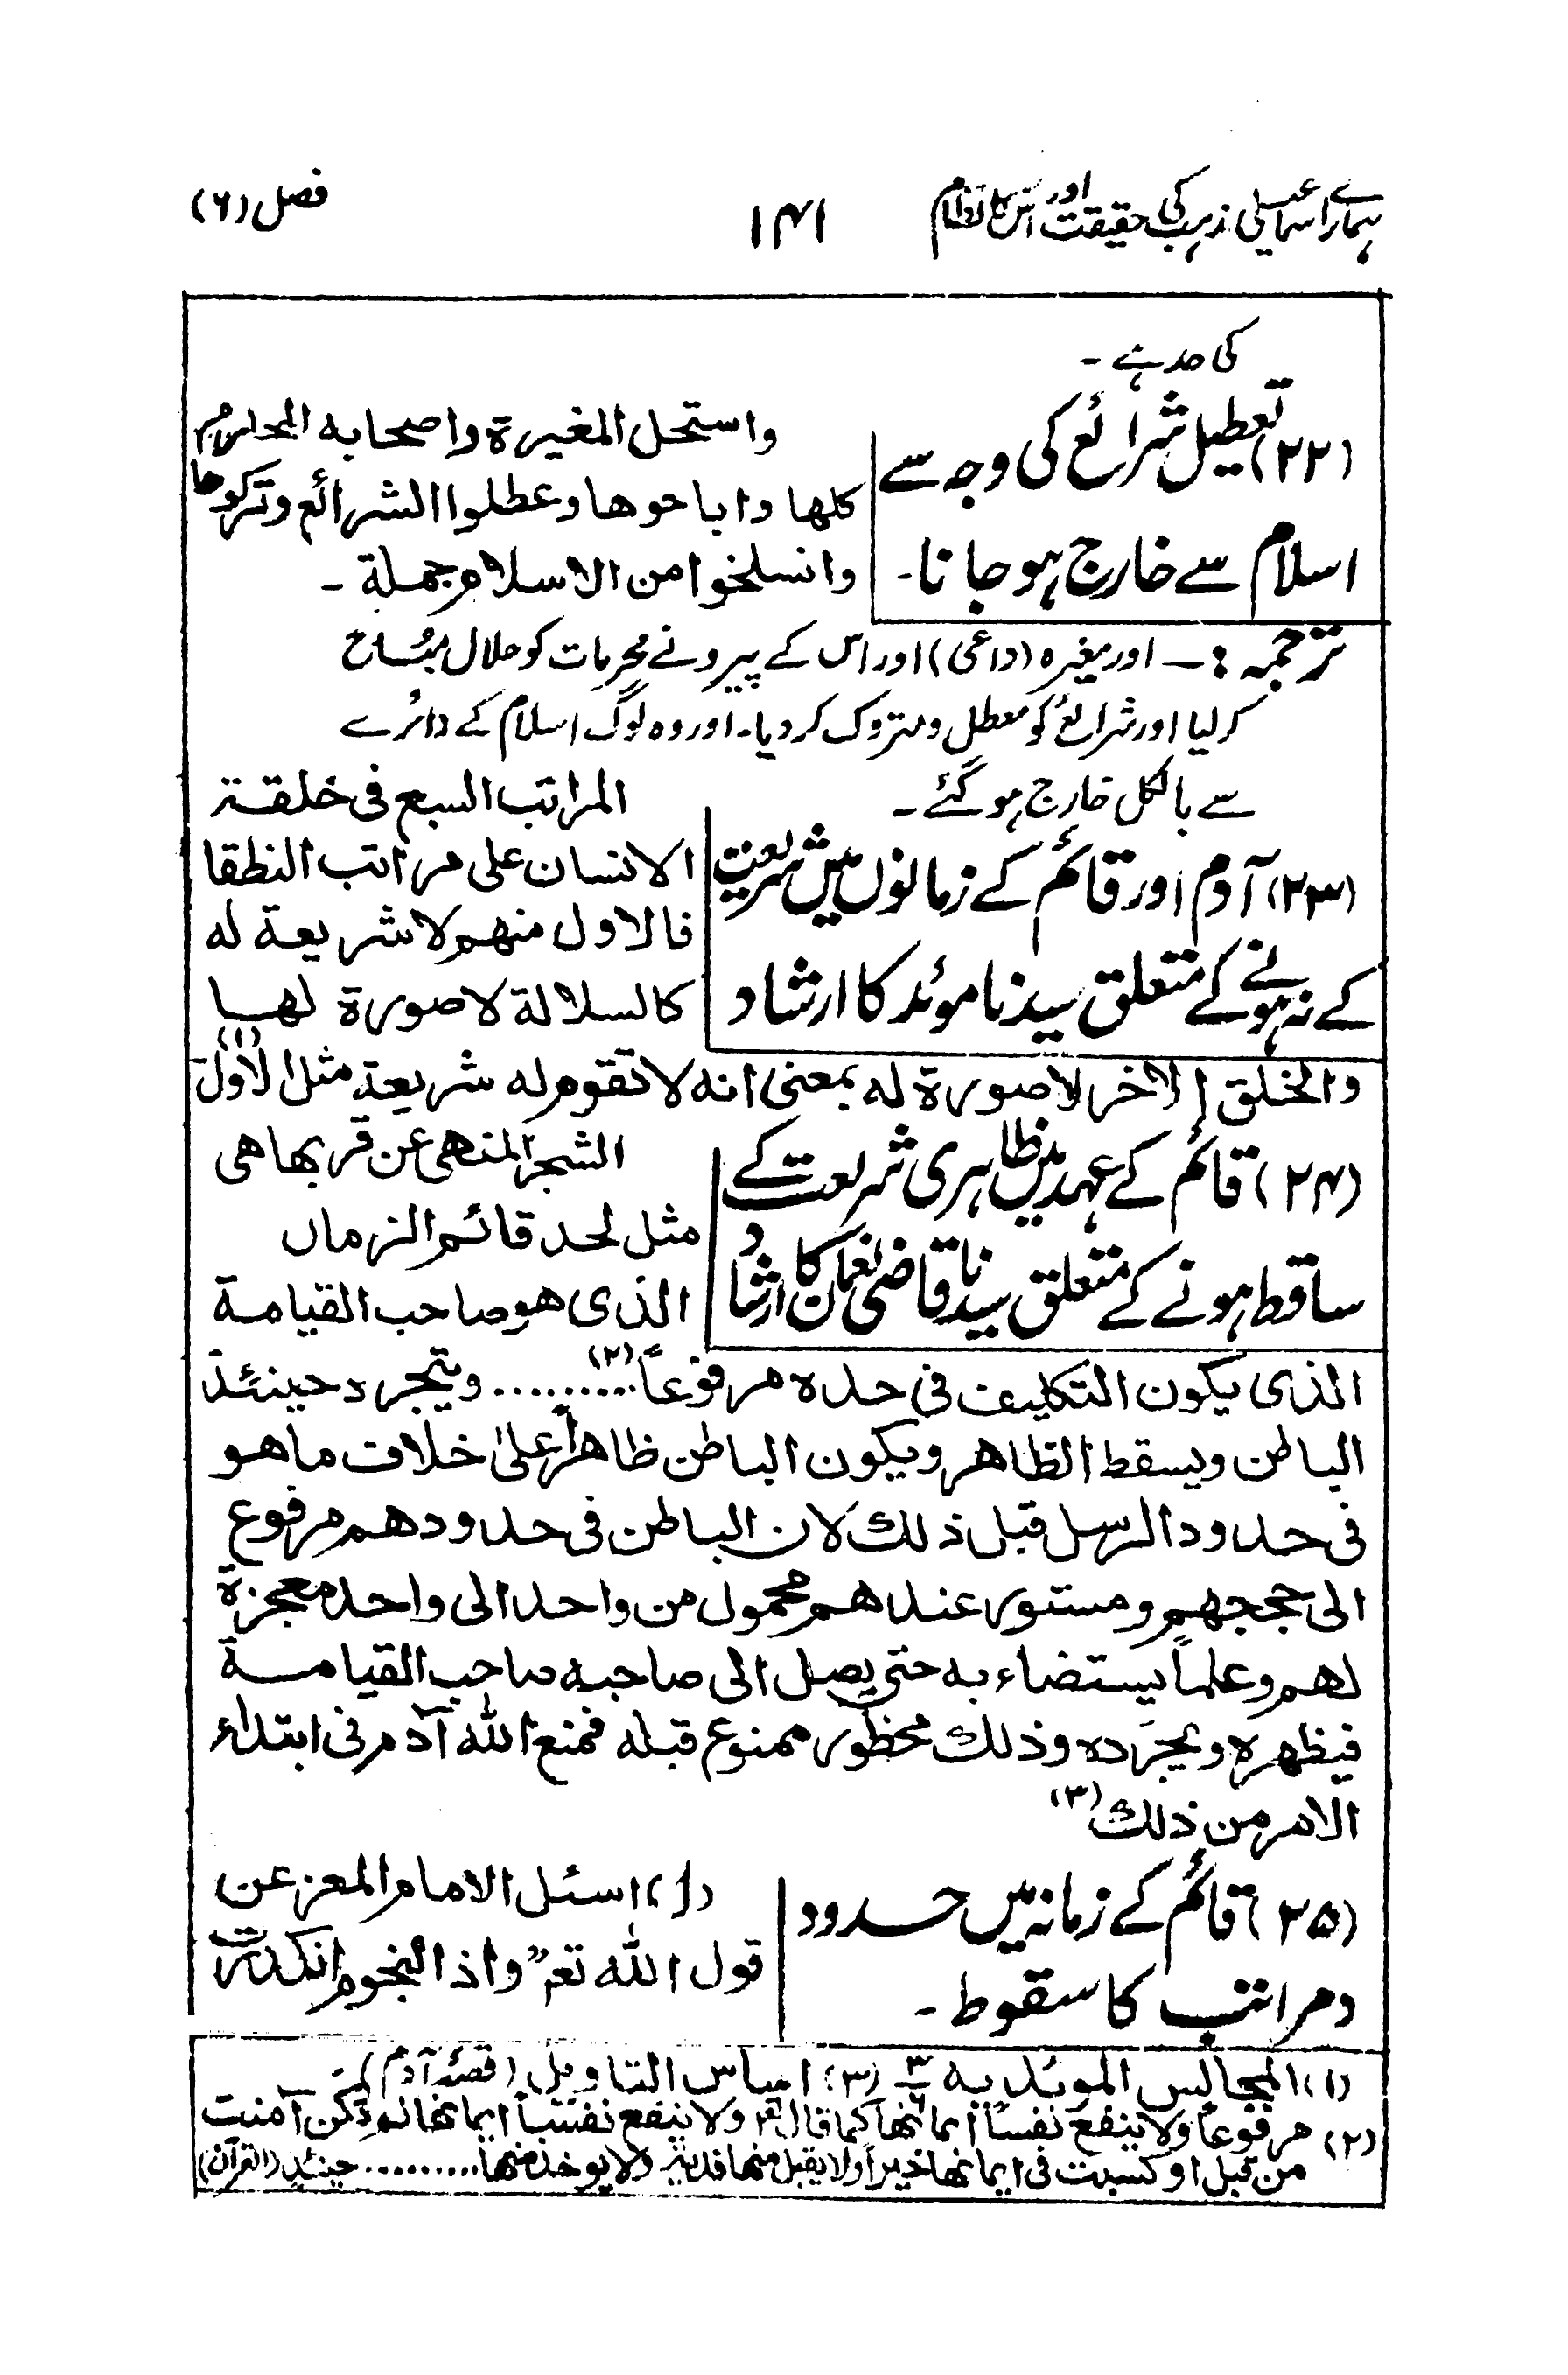 ہمارے اسماعیلی مذہب کی حقیقت اور اس کا نظام
۱۴۱
فصل (۶)
کی حد ہے ۔
(۲۲) تعطیل شرائع کی وجہ سے
اسلام سے خارج ہو جانا ۔
واستحل المغیرة واصحابه المحارم
کلها واباحوها وعطلوا الشرائع وترکوها
وانسلخوا من الاسلام جملة ۔
ترجمہ :۔ اور مغیرہ (داعی) اور اس کے پیرو نے محرمات کو حلال مباح
کر لیا اور شرائع کو معطل و متروک کر دیا۔ اور وہ لوگ اسلام کے دائرے
سے بالکل خارج ہو گئے ۔
(۲۳) آدم اور قائم کے زمانوں میں شریعت
کے نہ ہونے کے متعلق سیدنا موئد کا ارشاد
المراتب السبع فی خلقة
الانسان علی مراتب النطقا
فالاول منهم لا شریعة له
کالسلالة لا صورة لها
والخلق الآخر لا صورة له بمعنی انه لا تقوم له شریعة مثل الاول (۱)
(۲۴) قائم کے عہد میں ظاہری شریعت کے
ساقط ہونے کے متعلق سیدنا قاضی نعمان کا ارشاد
الشجر المنهی عن قربها هی
مثل لحد قائم الزمان
الذی هو صاحب القیامة
الذی یکون التکلیف فی حده مرفوعاً (۲) ......... ویتجرد حینئذ
الباطن ویسقط الظاهر ویکون الباطن ظاهراً علیٰ خلاف ما هو
فی حدود الرسل قبل ذلك لان الباطن فی حدودهم مرفوع
الی حججهم ومستور عندهم محمول من واحد الی واحد معجزة
لهم وعلماً یستضاء به حتی یصل الی صاحبه صاحب القیامة
فیظهره ویجرده وذلك محظور ممنوع قبله فمنع اللّٰه آدم فی ابتداء
الامر من ذلك (۳)
(۲۵) قائم کے زمانہ میں حدود
و مراتب کا سقوط ۔
(۱) اسئل الامام المعز عن
قول اللّٰه تعم "واذا النجوم انکدرت
(۱) المجالس الموئدیه ۳/۶ (۳) اساس التاویل (قصۂ آدم)
(۲) مرفوعاً ولا ینفع نفساً ایمانها کما قال تعم ولا ینفع نفساً ایمانها لم تکن آمنت
من قبل او کسبت فی ایمانها خیراً ولا یقبل منها فدیة ولا یوخذ منها .......... حینئذ (القرآن)